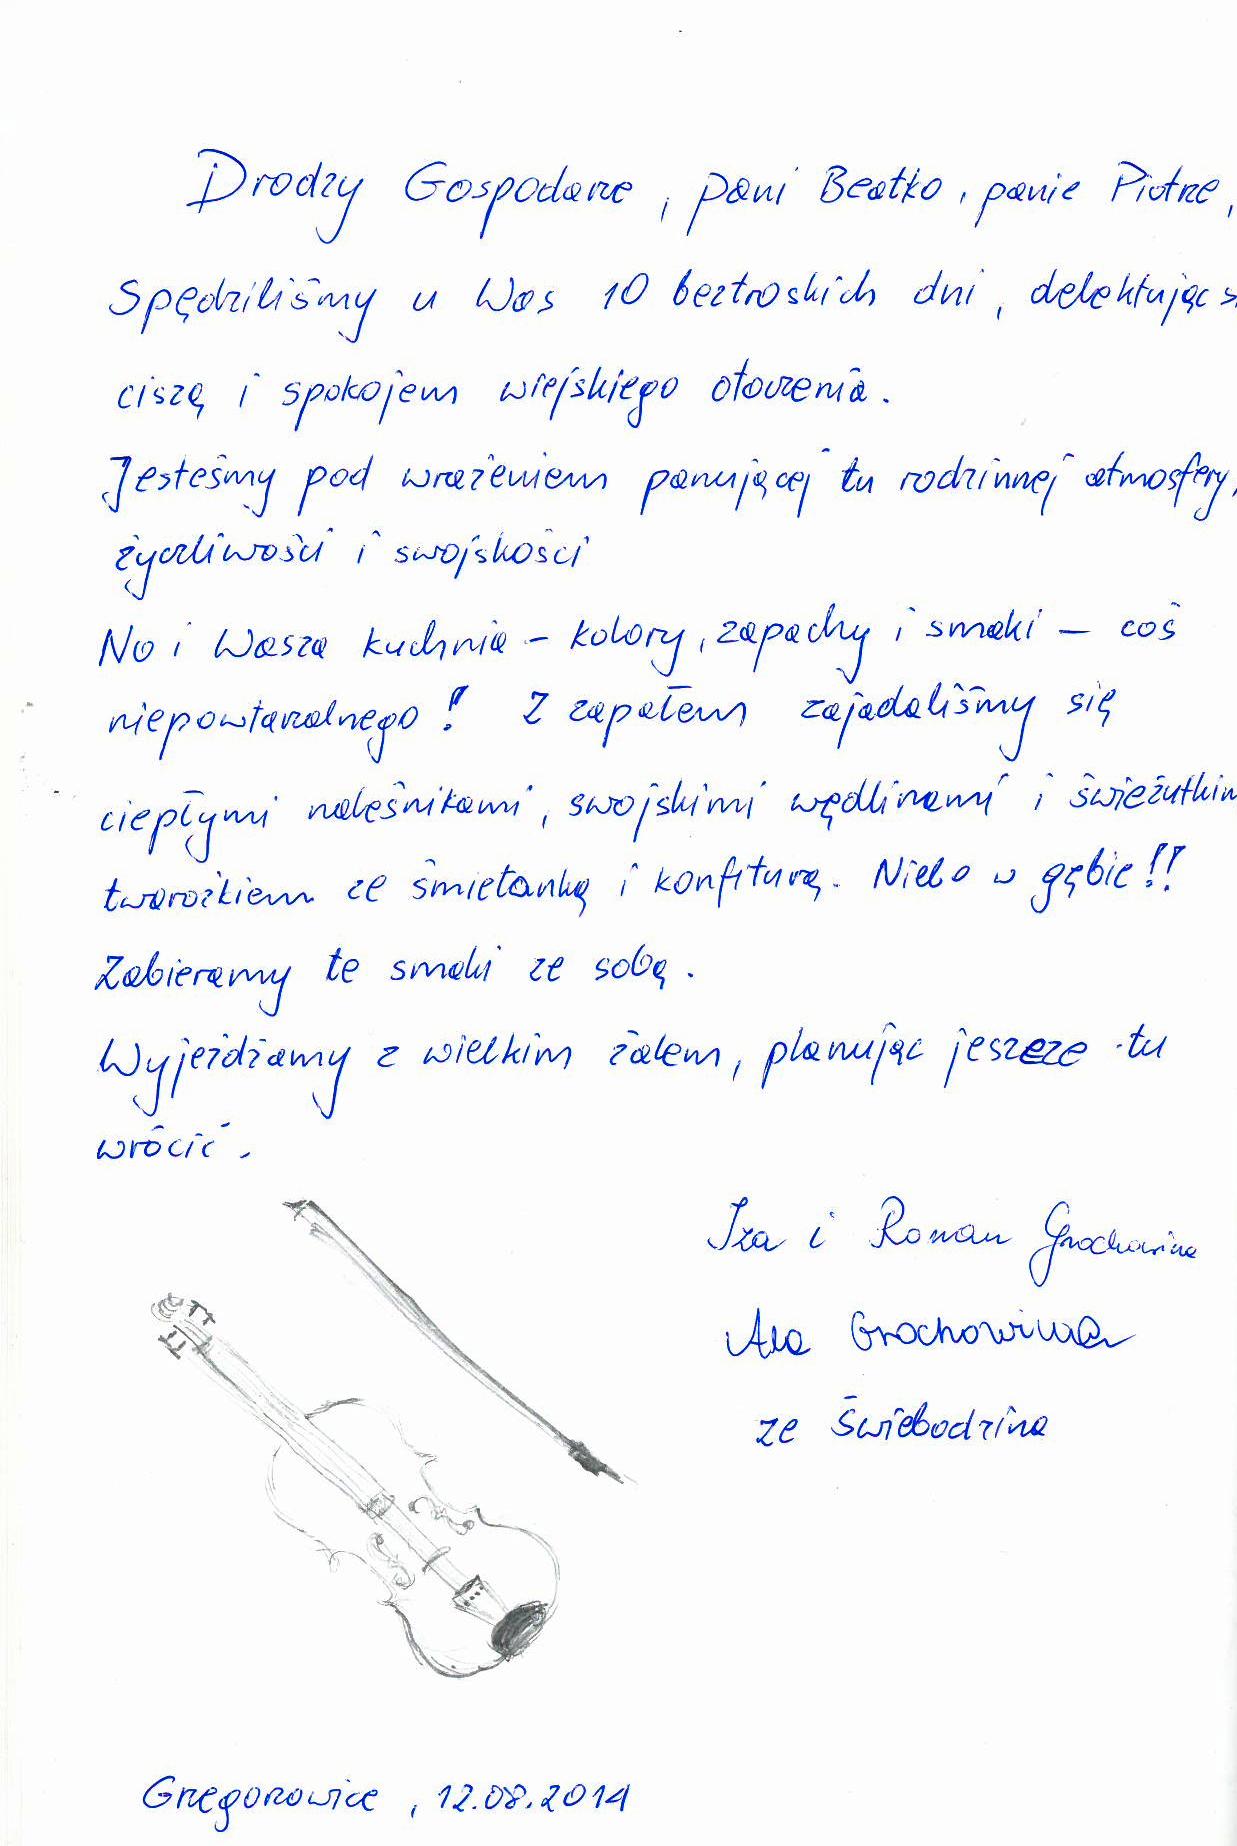 Drodzy Gospodarze, pani Beatko, panie Piotrze,
Spędziliśmy u Was 10 beztroskich dni, delektując s
ciszą i spokojem wiejskiego otoczenia.
Jesteśmy pod wrażeniem panującej tu rodzinnej atmosfery,
życzliwości i swojskości
No i Wasza kuchnia - kolory, zapachy i smaki - coś
niepowtarzalnego! Z zapałem zajadaliśmy się
ciepłymi naleśnikami, swojskimi wędlinami i świeżutkim
twarożkiem ze śmietanką i konfiturą. Niebo w gębie!!
Zabieramy te smaki ze sobą.
Wyjeżdżamy z wielkim żalem, planując jeszcze tu
wrócić.
Iza i Roman Grochowina
Ala Grochowina
ze Świebodzina
Gregorowice, 12.08.2014